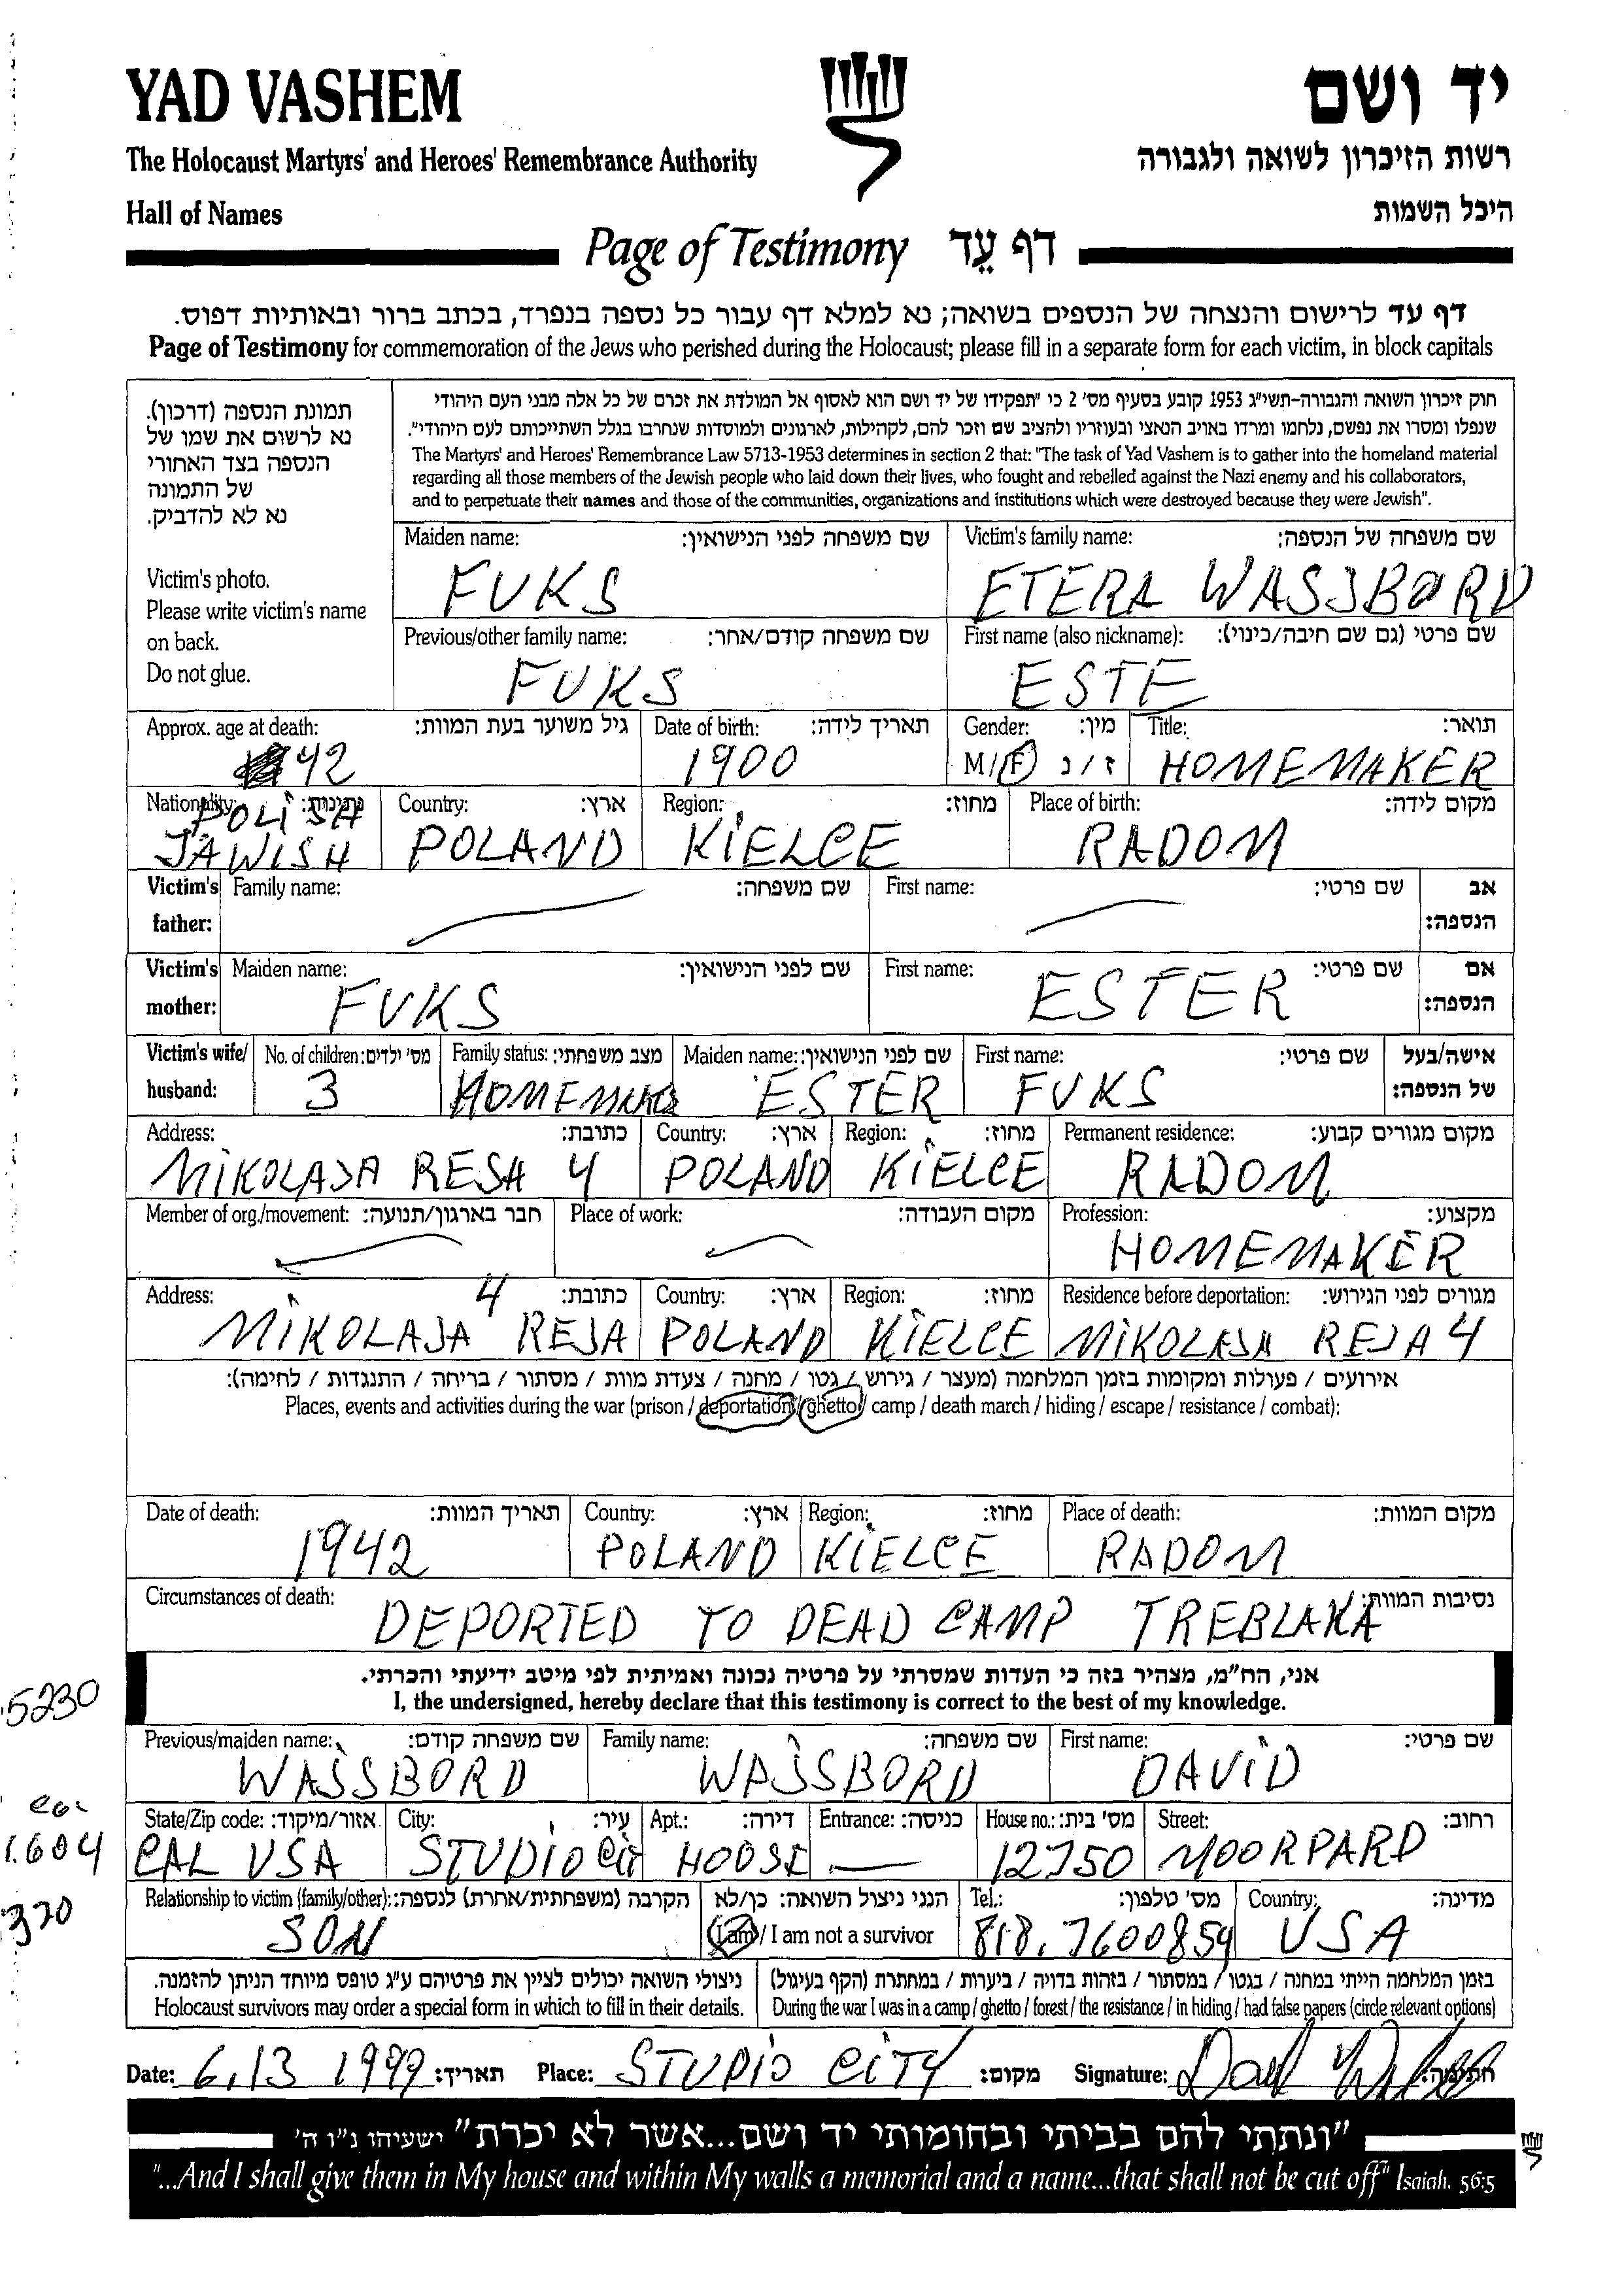 YAD VASHEM
יד ושם
The Holocaust Martyrs' and Heroes' Remembrance Authority
רשות הזיכרון לשואה ולגבורה
Hall of Names
היכל השמות
Page of Testimony דף עֵד
דף עד לרישום והנצחה של הנספים בשואה; נא למלא דף עבור כל נספה בנפרד, בכתב ברור ובאותיות דפוס.
Page of Testimony for commemoration of the Jews who perished during the Holocaust; please fill in a separate form for each victim, in block capitals
תמונת הנספה (דרכון).
נא לרשום את שמו של
הנספה בצד האחורי
של התמונה
נא לא להדביק.
Victim's photo.
Please write victim's name
on back.
Do not glue.
חוק זיכרון השואה והגבורה-תשי"ג 1953 קובע בסעיף מס' 2 כי "תפקידו של יד ושם הוא לאסוף אל המולדת את זכרם של כל אלה מבני העם היהודי
שנפלו ומסרו את נפשם, נלחמו ומרדו באויב הנאצי ובעוזריו ולהציב שם וזכר להם, לקהילות, לארגונים ולמוסדות שנחרבו בגלל השתייכותם לעם היהודי".
The Martyrs' and Heroes' Remembrance Law 5713-1953 determines in section 2 that: "The task of Yad Vashem is to gather into the homeland material
regarding all those members of the Jewish people who laid down their lives, who fought and rebelled against the Nazi enemy and his collaborators,
and to perpetuate their names and those of the communities, organizations and institutions which were destroyed because they were Jewish".
Maiden name: שם משפחה לפני הנישואין: Victim's family name: שם משפחה של הנספה:
FUKS ETERA WASSBORD
Previous/other family name: שם משפחה קודם/אחר: First name (also nickname): שם פרטי (גם שם חיבה/כינוי):
FUKS ESTE
Approx. age at death: גיל משוער בעת המוות: Date of birth: תאריך לידה: Gender: מין: Title: תואר:
42 1900 M/F ז/נ HOMEMAKER
Nationality: נתינות: Country: ארץ: Region: מחוז: Place of birth: מקום לידה:
POLISH
JAWISH POLAND KIELCE RADOM
Victim's Family name: שם משפחה: First name: שם פרטי: אב
father: הנספה:
Victim's Maiden name: שם לפני הנישואין: First name: שם פרטי: אם
mother: FUKS ESTER הנספה:
Victim's wife/ No. of children: מס' ילדים: Family status: מצב משפחתי: Maiden name: שם לפני הנישואין: First name: שם פרטי: אישה/בעל
husband: 3 HOMEMAKE ESTER FUKS של הנספה:
Address: כתובת: Country: ארץ: Region: מחוז: Permanent residence: מקום מגורים קבוע:
MIKOLAJA RESA 4 POLAND KIELCE RADOM
Member of org./movement: חבר בארגון/תנועה: Place of work: מקום העבודה: Profession: מקצוע:
HOMEMAKER
Address: כתובת: Country: ארץ: Region: מחוז: Residence before deportation: מגורים לפני הגירוש:
MIKOLAJA 4 REJA POLAND KIELCE MIKOLAJA REJA 4
אירועים / פעולות ומקומות בזמן המלחמה (מעצר / גירוש / גטו / מחנה / צעדת מוות / מסתור / בריחה / התנגדות / לחימה):
Places, events and activities during the war (prison / deportation / ghetto / camp / death march / hiding / escape / resistance / combat):
Date of death: תאריך המוות: Country: ארץ: Region: מחוז: Place of death: מקום המוות:
1942 POLAND KIELCE RADOM
Circumstances of death: נסיבות המוות:
DEPORTED TO DEAD CAMP TREBLAKA
אני, הח"מ, מצהיר בזה כי העדות שמסרתי על פרטיה נכונה ואמיתית לפי מיטב ידיעתי והכרתי.
I, the undersigned, hereby declare that this testimony is correct to the best of my knowledge.
5230
Previous/maiden name: שם משפחה קודם: Family name: שם משפחה: First name: שם פרטי:
WAJSBORD WAJSBORD DAVID
State/Zip code: אזור/מיקוד: City: עיר: Apt.: דירה: Entrance: כניסה: House no.: מס' בית: Street: רחוב:
1.604
CAL USA STUDIO CIT HOOSE 12750 MOORPARD
Relationship to victim (family/other): הקרבה (משפחתית/אחרת) לנספה: הנני ניצול השואה: כן/לא Tel.: מס' טלפון: Country: מדינה:
370
SON I am / I am not a survivor 818.7600859 USA
ניצולי השואה יכולים לציין את פרטיהם ע"ג טופס מיוחד הניתן להזמנה.
Holocaust survivors may order a special form in which to fill in their details.
בזמן המלחמה הייתי במחנה / בגטו / במסתור / בזהות בדויה / ביערות / במחתרת (הקף בעיגול)
During the war I was in a camp / ghetto / forest / the resistance / in hiding / had false papers (circle relevant options)
Date: 6.13 1999 תאריך: Place: STUDIO CITY מקום: Signature: חתימה:
"ונתתי להם בביתי ובחומותי יד ושם...אשר לא יכרת" ישעיהו נ"ו ה'
"...And I shall give them in My house and within My walls a memorial and a name...that shall not be cut off" Isaiah. 56:5